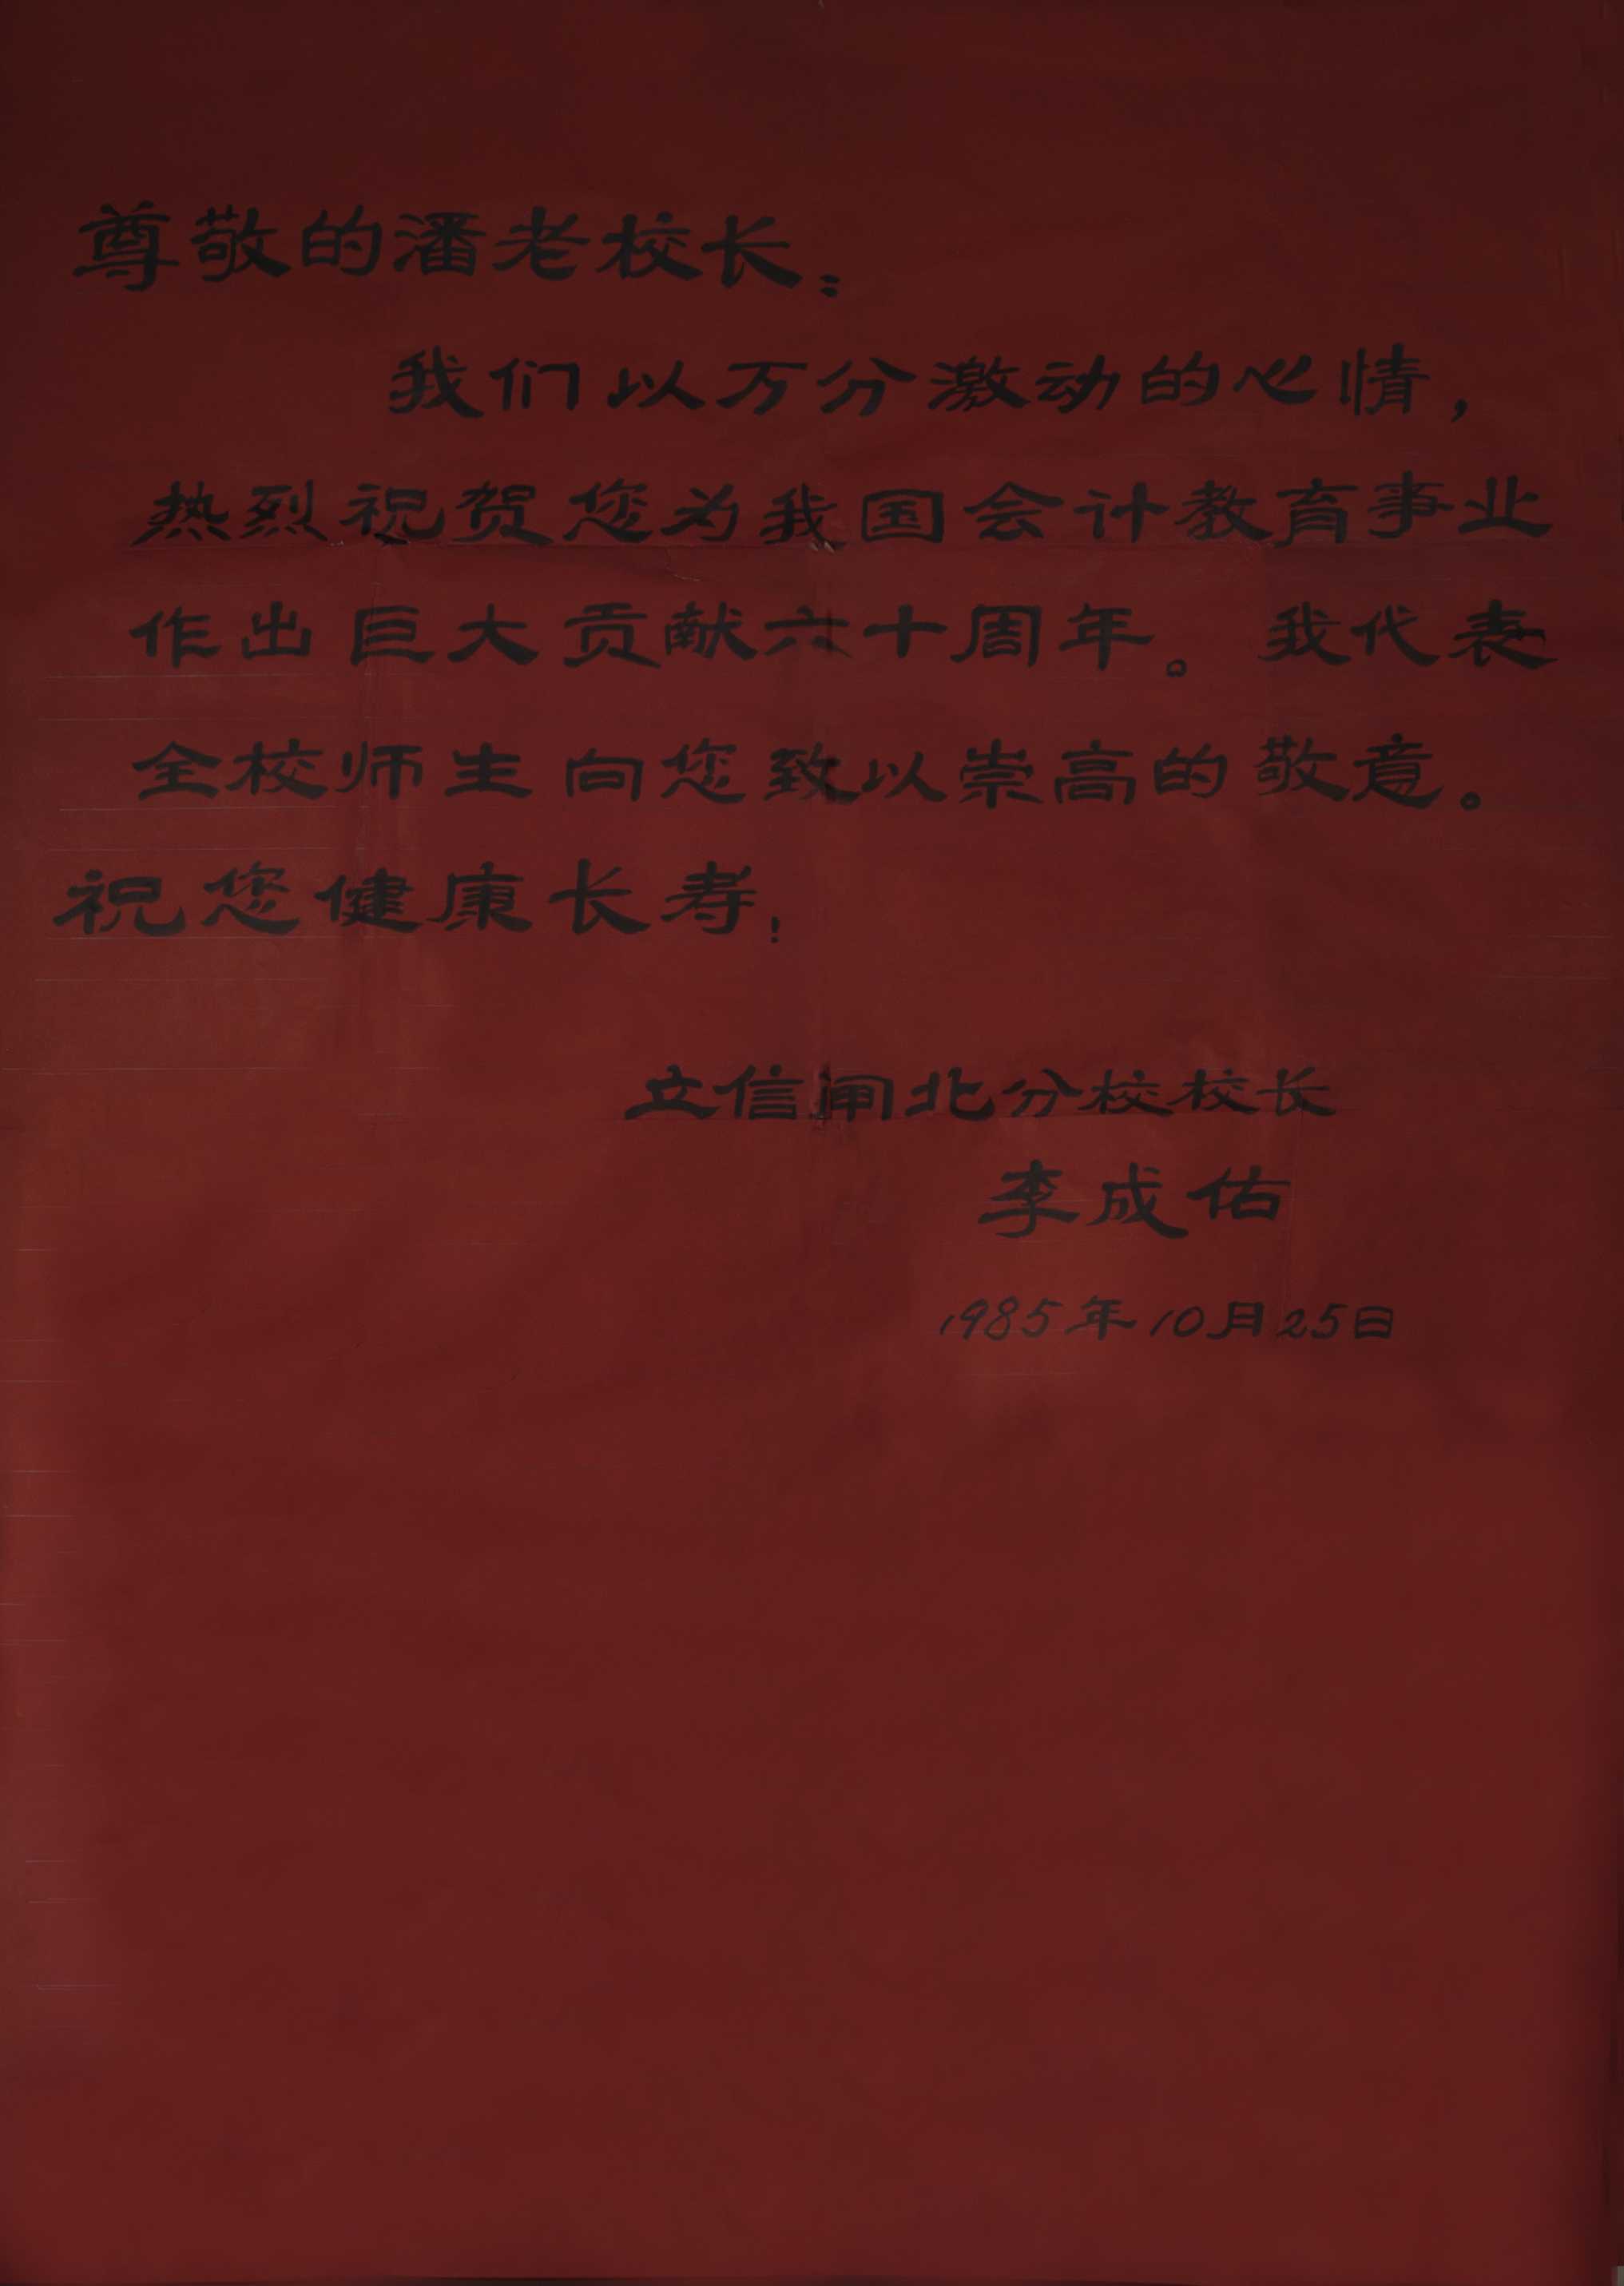 尊敬的潘老校长：
我们以万分激动的心情，
热烈祝贺您为我国会计教育事业
作出巨大贡献六十周年。我代表
全校师生向您致以崇高的敬意。
祝您健康长寿！
立信闸北分校校长
李成佑
1985年10月25日